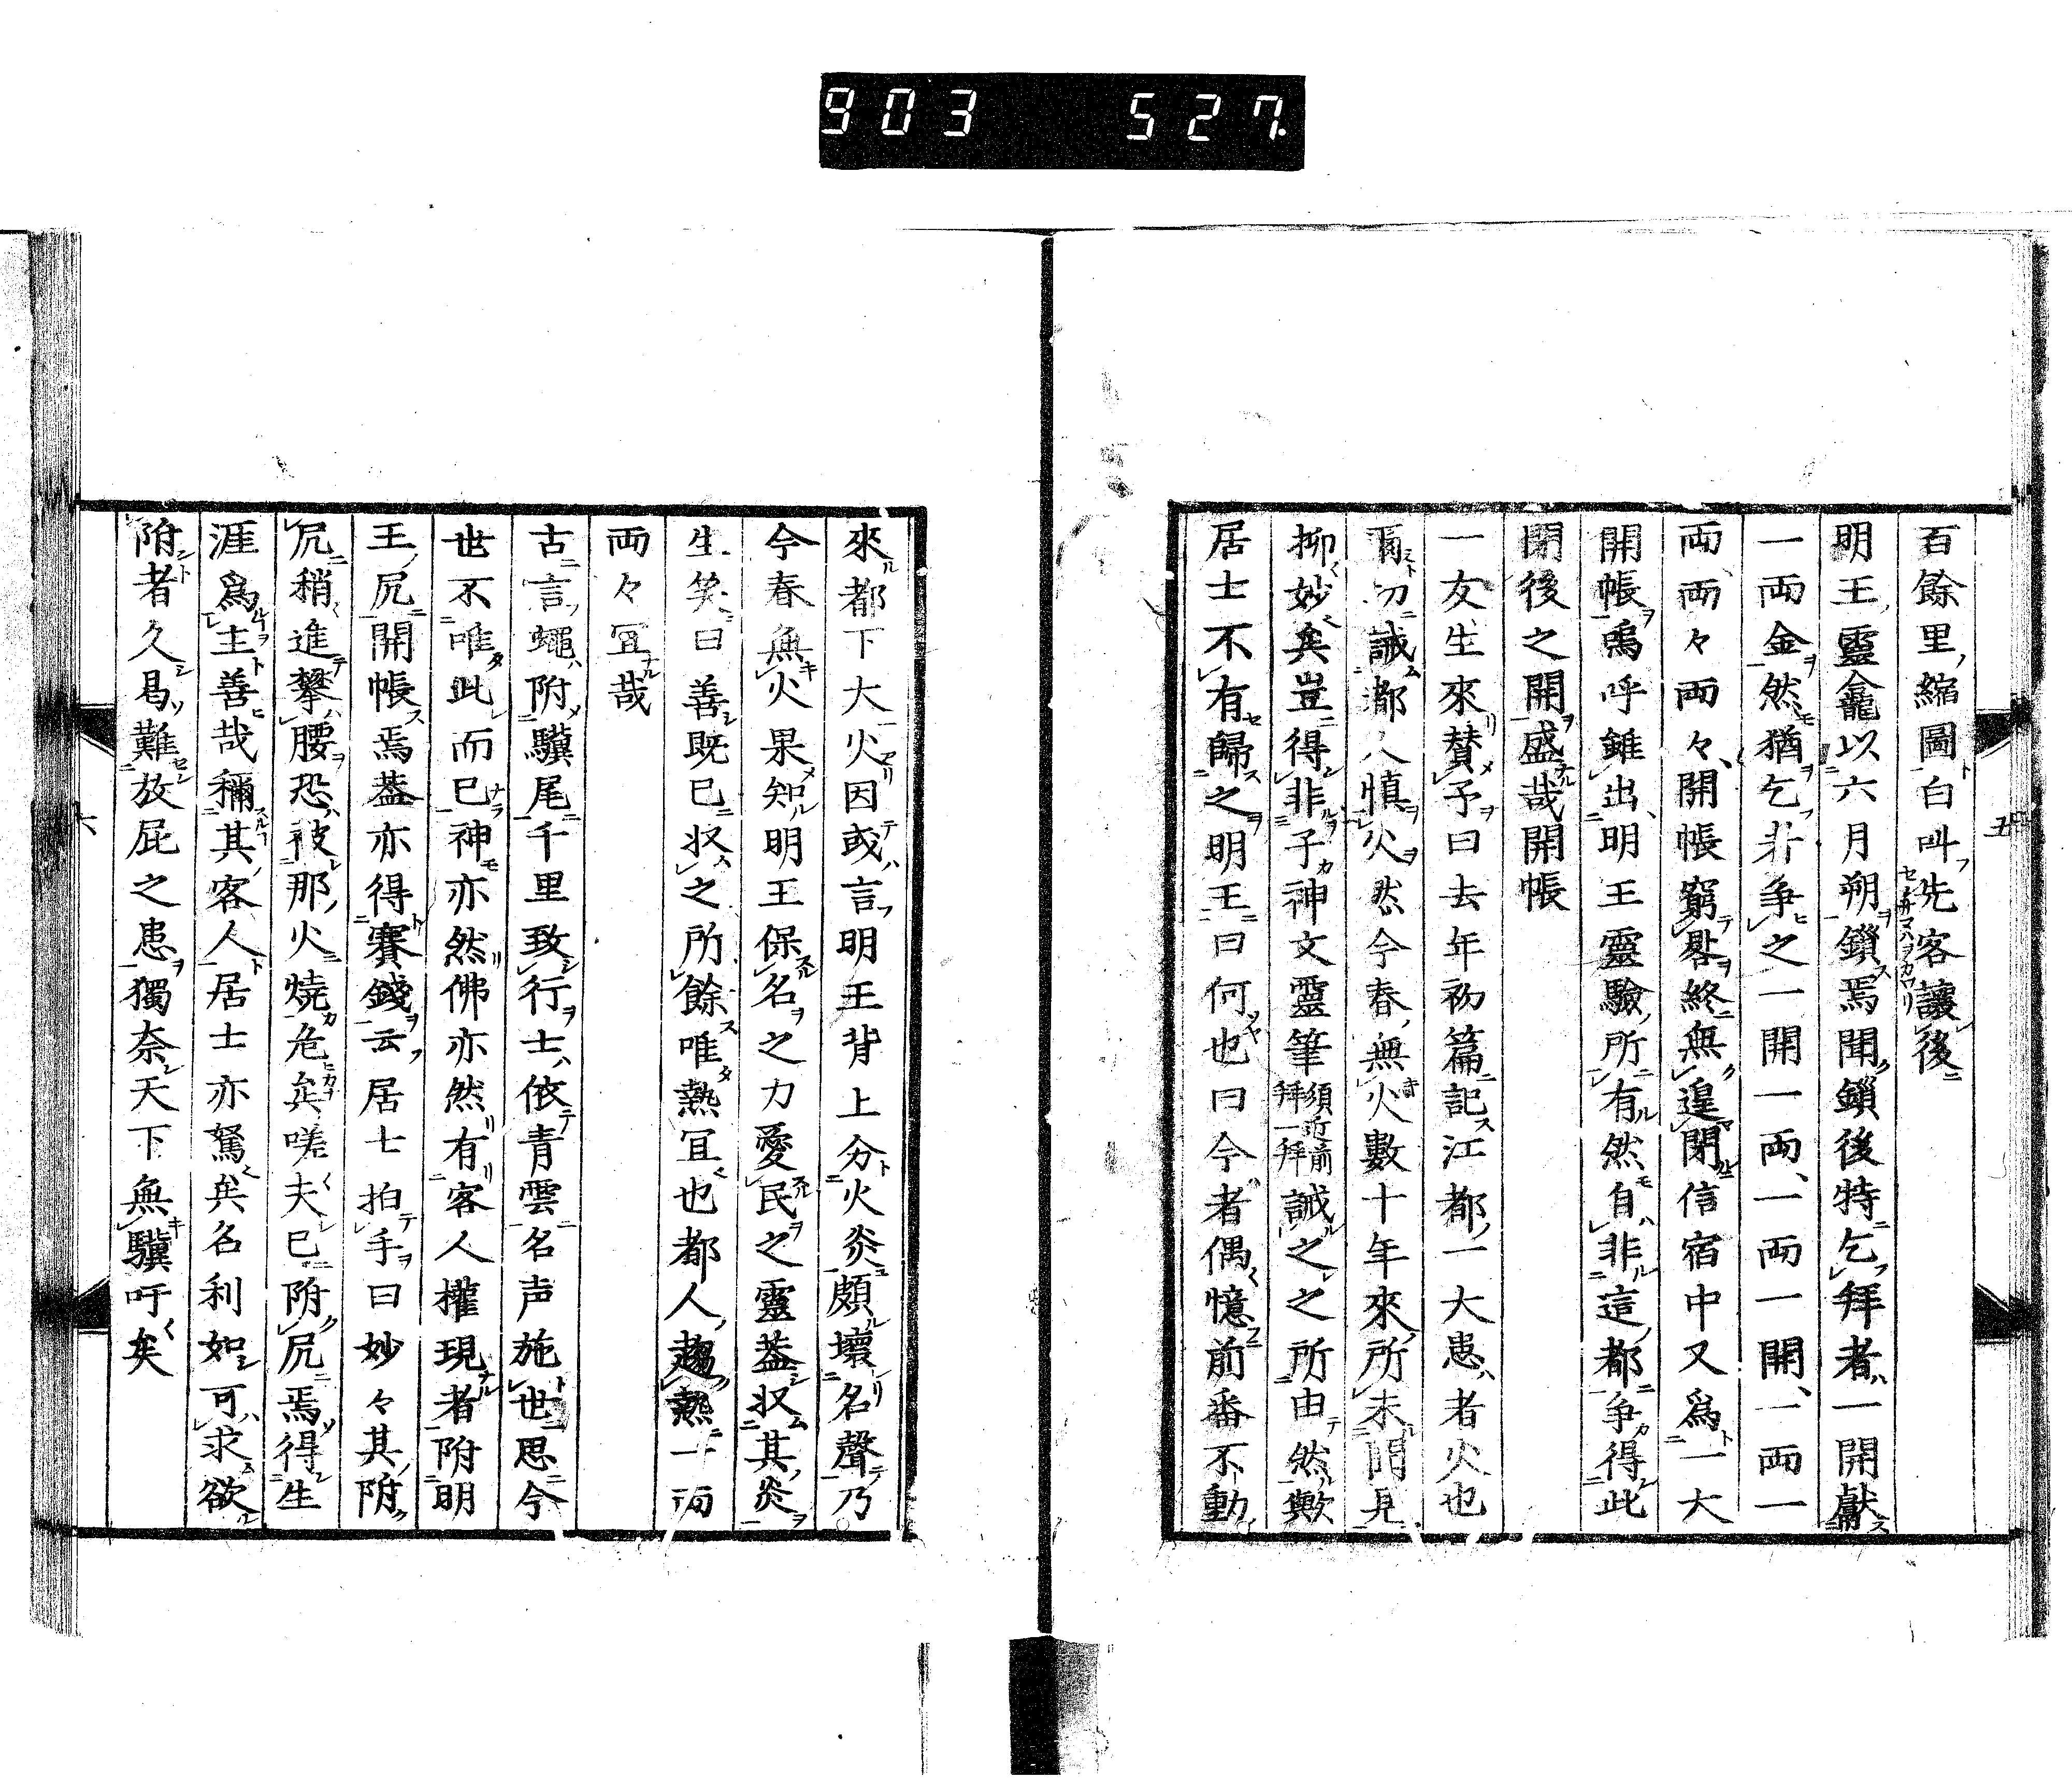 903 527.
百餘里縮圖白叫先客讓後
明王靈龕以六月朔鎖焉聞鎖後特乞拜者一開獻
一両金然猶乞井爭之一開一両、一両一開、一両一
両両々両々、開帳窮晷終無遑閉信宿中又爲一大
開帳嗚呼錐出、明王靈驗所有然自非這都爭得此
閉後之開盛哉開帳
一友生來賛予曰去年初篇記江都一大患者火也
切誡都人慎火然今春無火數十年來所未聞見
抑妙矣豈得非子神文靈筆須近前拜一拜誠之之所由然歟
居士不有歸之明王曰何也曰今者偶憶前番不動
五
來都下大火因或言明王背上分火炎頗壞名聲乃
今春無火果知明王保名之力愛民之靈蓋収其炎
生笑曰善既已収之所餘唯熱冝也都人趨熱一両
両々冝哉
古言蠅附驥尾千里致行士依青雲名声施世思今
世不唯此而已神亦然佛亦然有客人權現者附明
王尻開帳焉蓋亦得賽錢云居士拍手曰妙々其附
尻稍進攀腰恐被那火燒危矣嗟夫已附尻焉得生
涯爲主善哉稱其客人居士亦駑矣名利如可求欲
附者久曷難放屁之患獨奈天下無驥吁矣
六